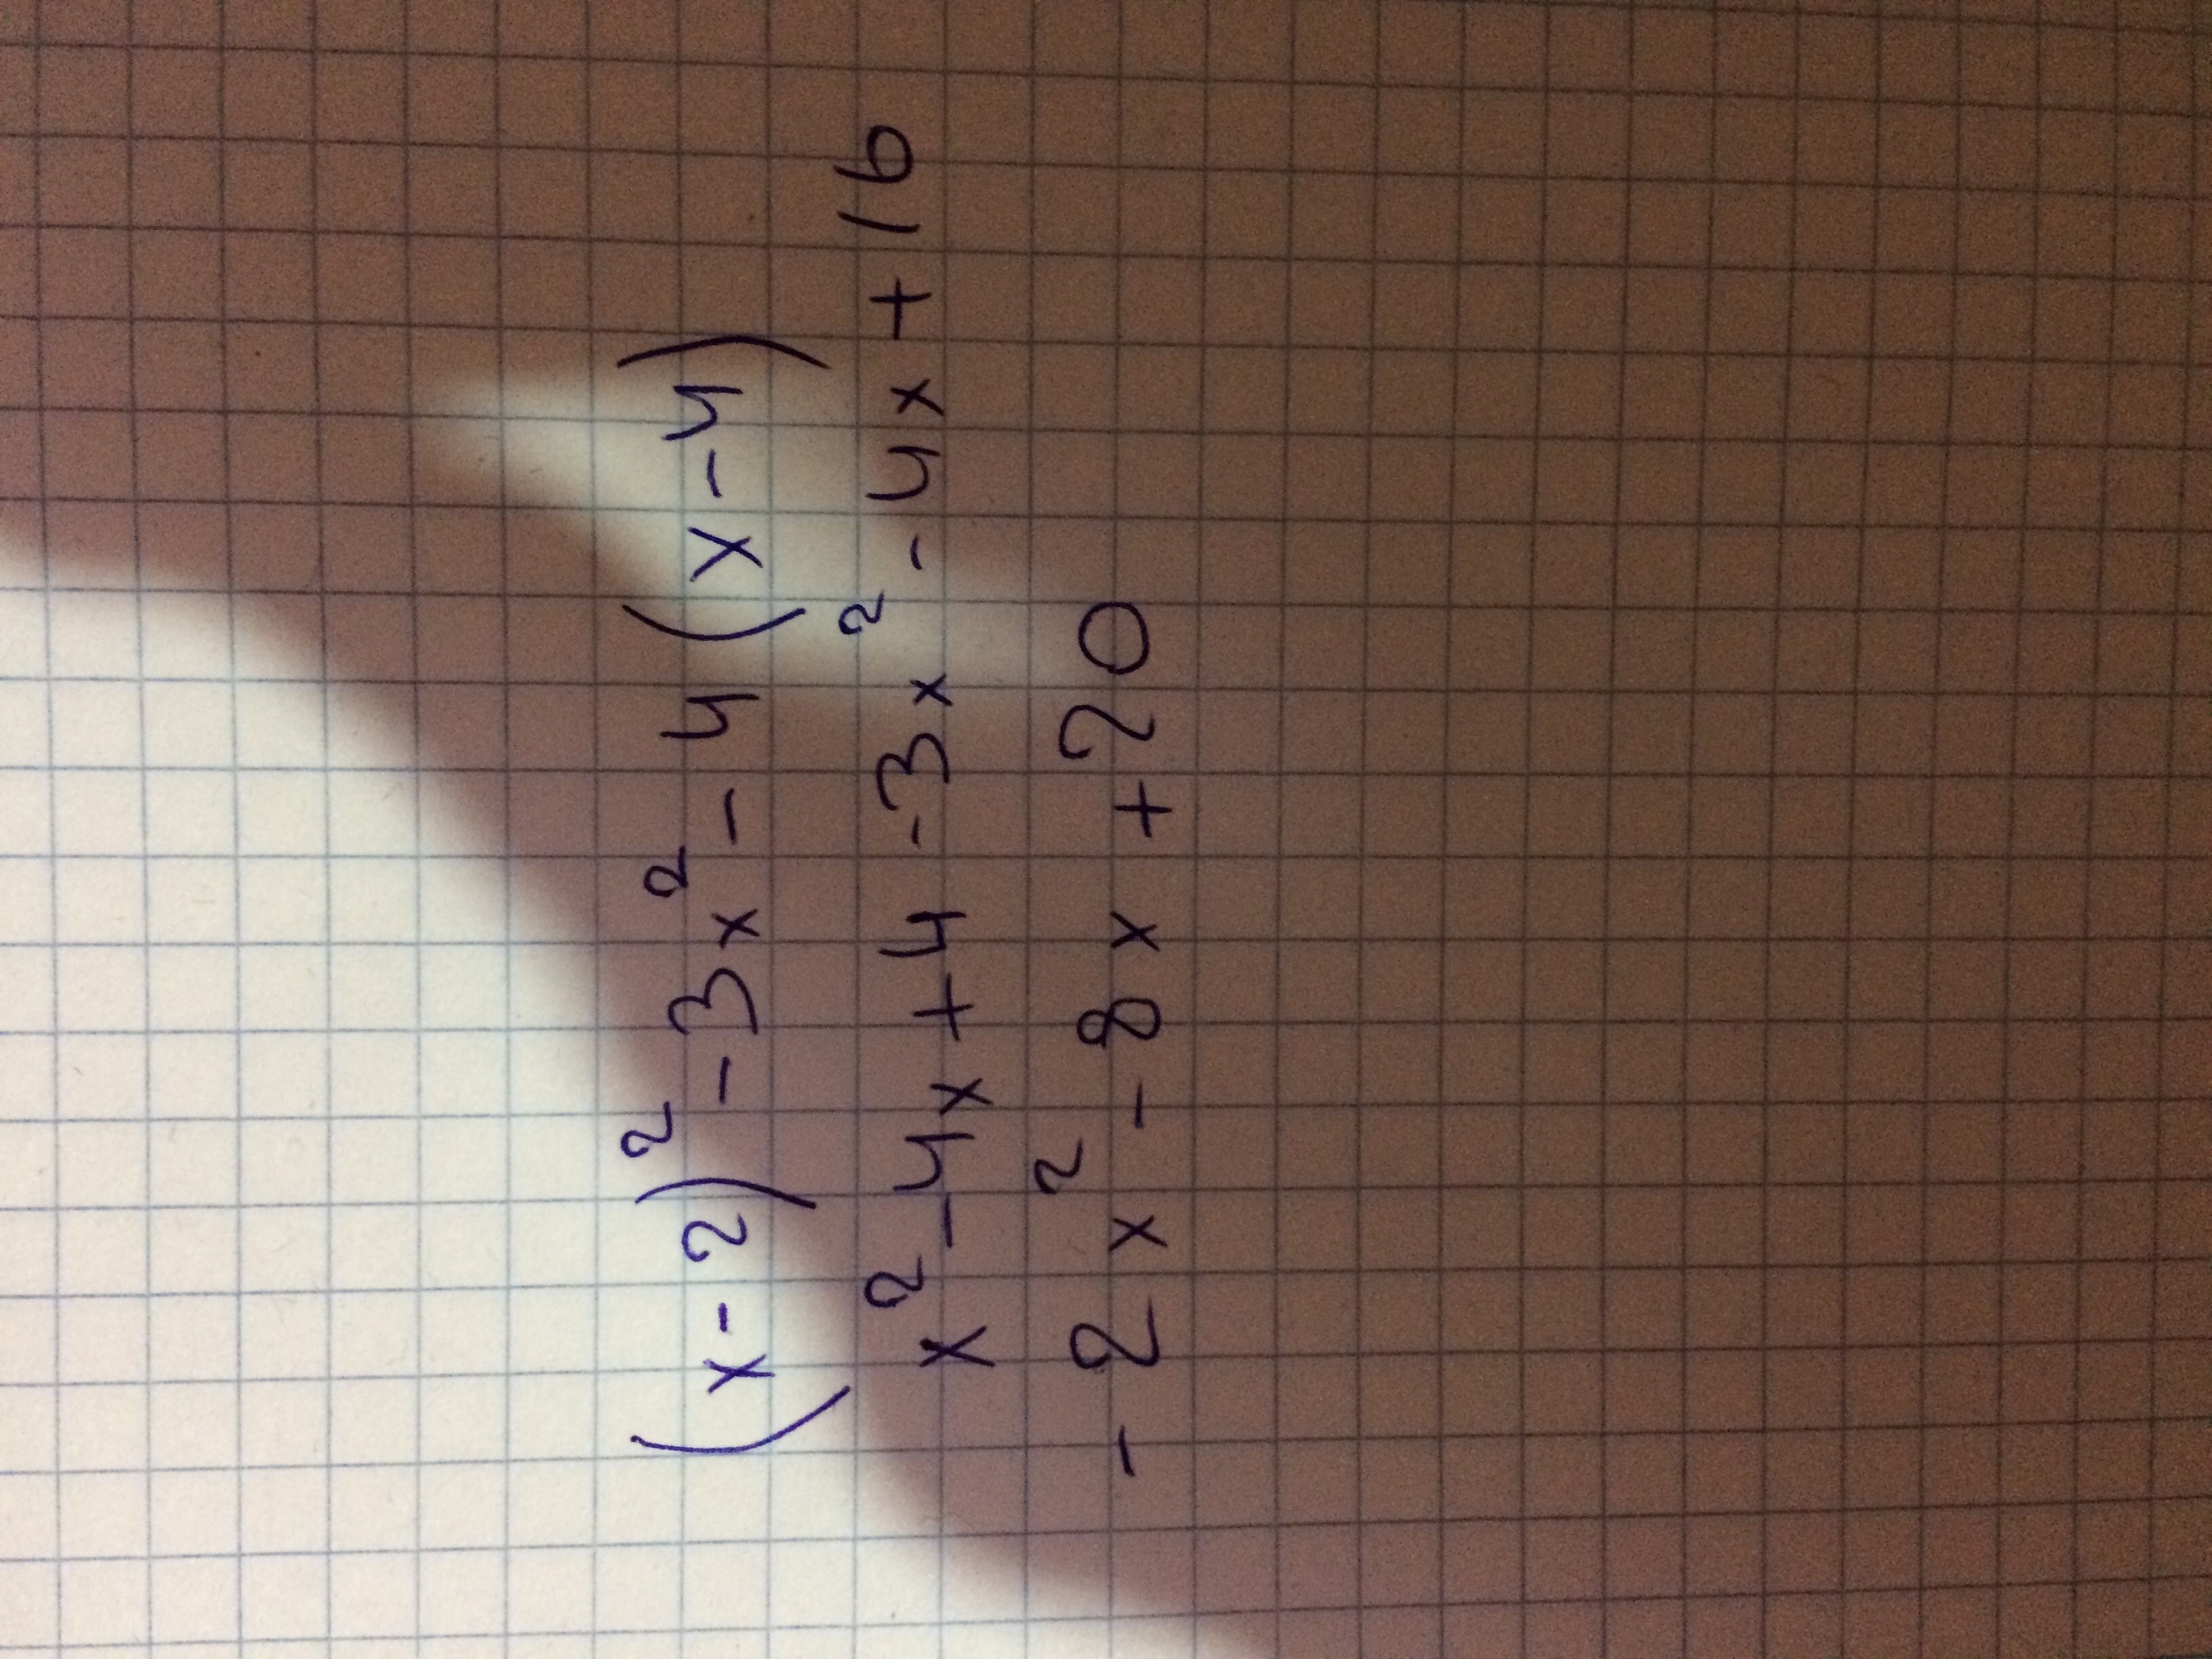 (x-2)²-3x²-4(x-4)
x²-4x+4-3x²-4x+16
-2x²-8x+20